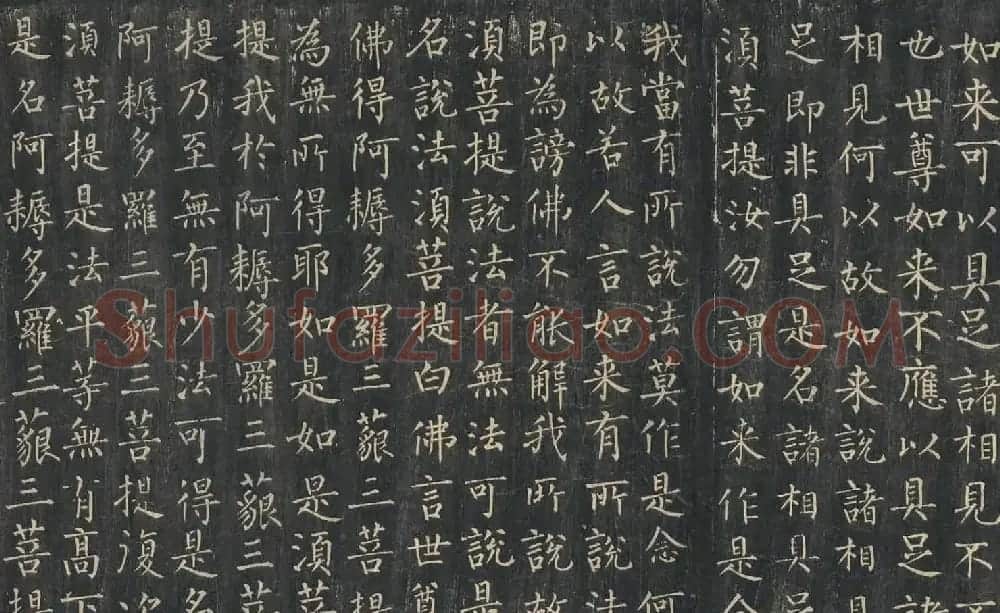 如来可以具足諸相見不
也世尊如来不應以具足諸
相見何以故如来說諸相
足即非具足是名諸相具足
湏菩提汝勿謂如来作是念
我當有所說法莫作是念何
以故若人言如来有所說法
即為謗佛不能解我所說故
湏菩提說法者無法可說是
名說法湏菩提白佛言世尊
佛得阿耨多羅三藐三菩提
為無所得耶如是如是湏菩
提我於阿耨多羅三藐三菩
提乃至無有少法可得是名
阿耨多羅三藐三菩提復次
湏菩提是法平等無有高下
是名阿耨多羅三藐三菩提
Shufaziliao.COM